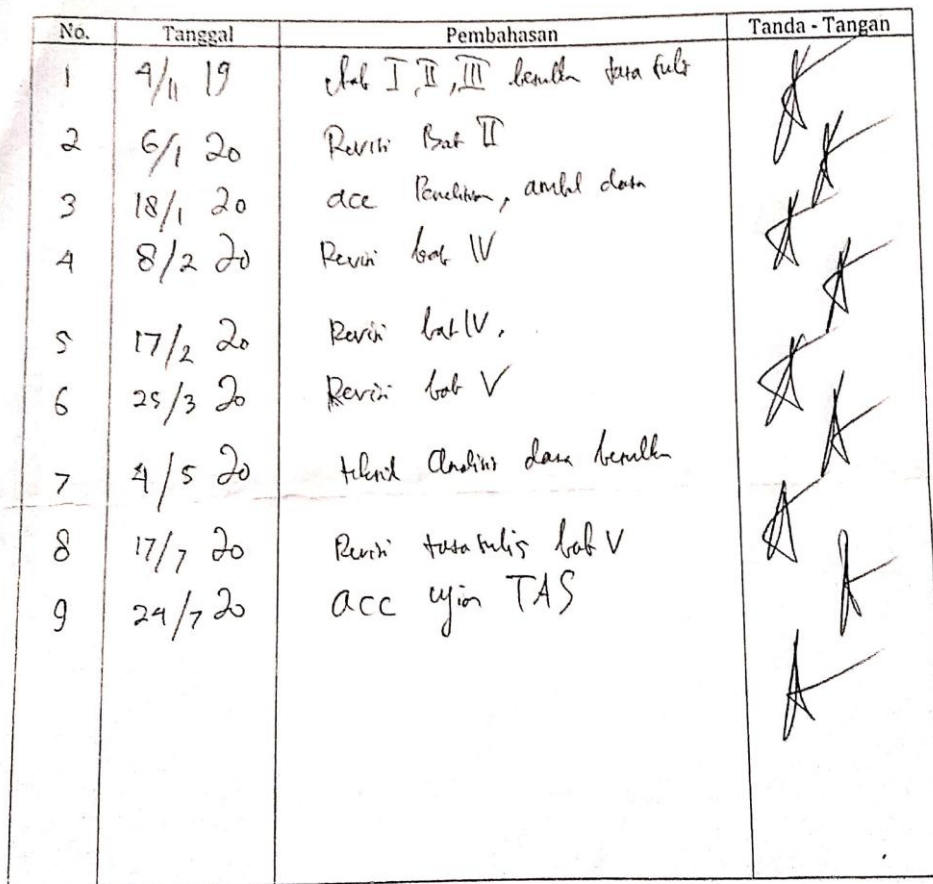 No. Tanggal Pembahasan Tanda - Tangan
1 4/11 19 bab I, II, III tata tulis
2 6/1 20 Revisi Bab II
3 18/1 20 acc Penelitian, ambil data
4 8/2 20 Revisi bab IV
5 17/2 20 Revisi bab IV.
6 25/3 20 Revisi bab V
7 4/5 20 teknik Analisis data
8 17/7 20 Revisi tata tulis bab V
9 24/7 20 acc ujian TAS